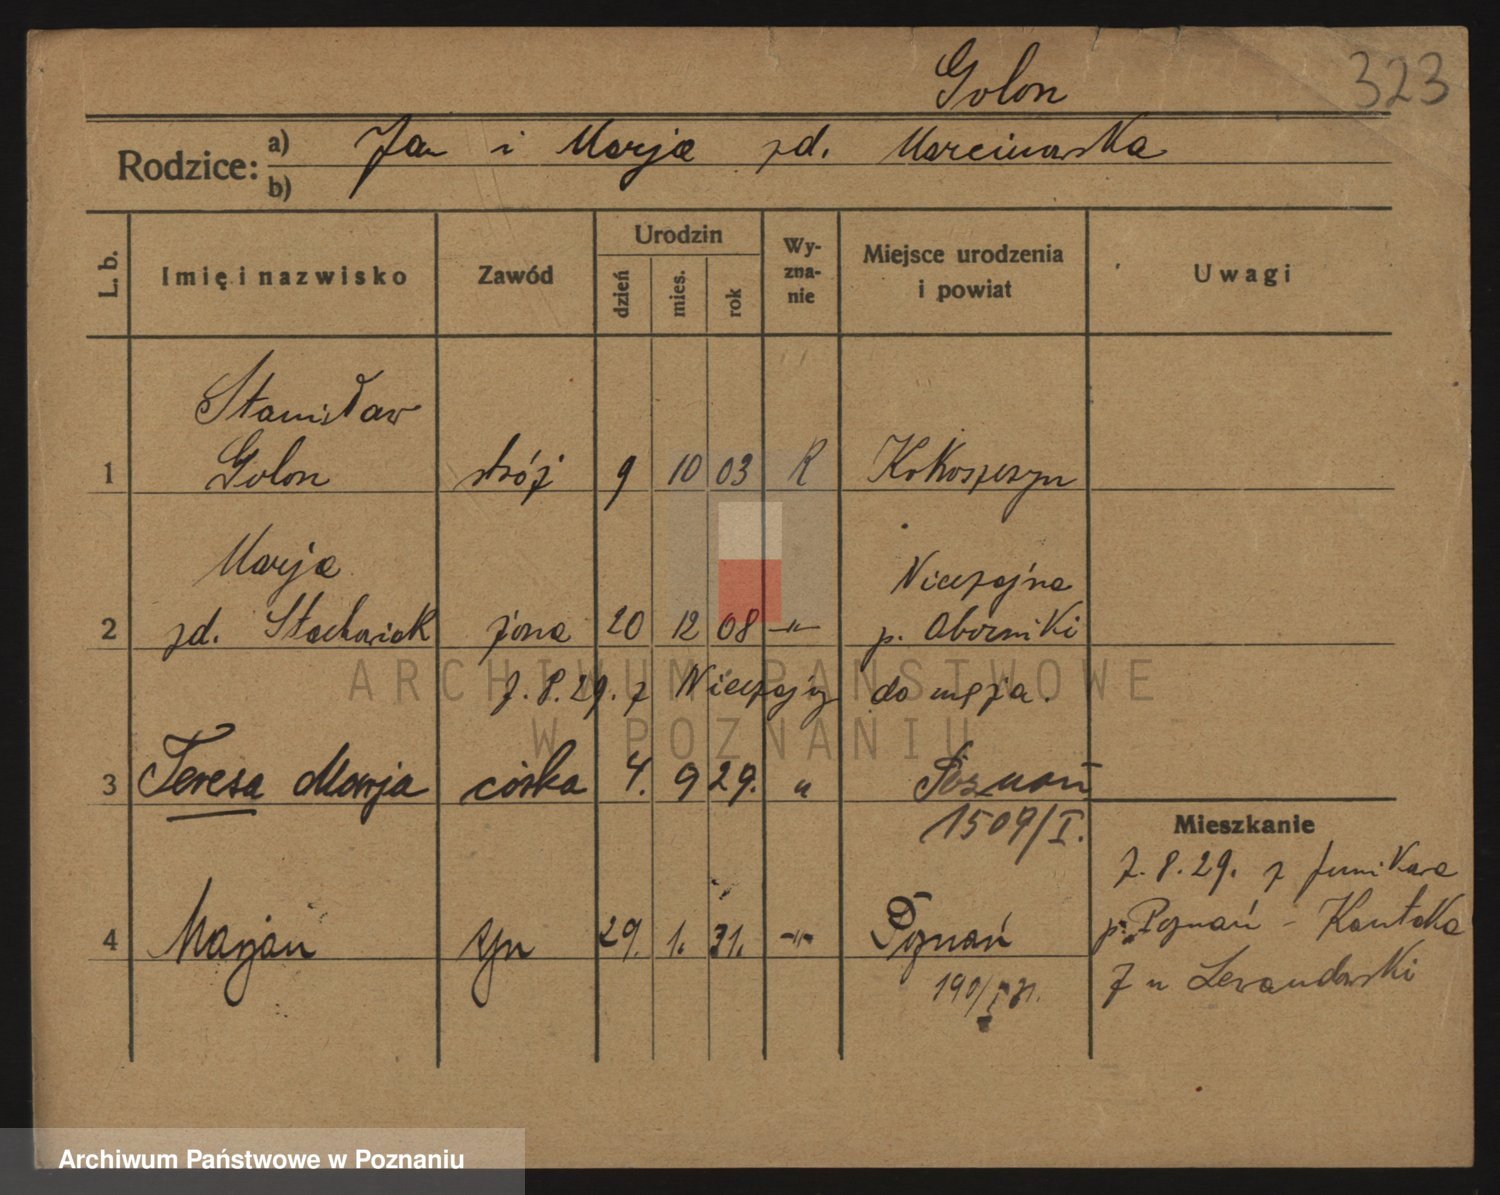 Golon
323
Rodzice:
a) Jan i Marja zd. Marcinowska
b)
L. b.
Imię i nazwisko
Zawód
Urodzin
dzień
mies.
rok
Wy-
zna-
nie
Miejsce urodzenia
i powiat
Uwagi
Stanisław
1 Golon stróż 9 10 03 R Kokoszczyn
Marja Nieczajna
2 zd. Stachowiak żona 20 12 08 -"- p. Oborniki
7.8.29. z Nieczajny do męża.
3 Teresa Marja córka 4. 9 29. " Poznań
1509/I.
Mieszkanie
7.8.29. z Junikowa
p. Poznań - Kantaka
4 Marjan syn 29. 1. 31. -"- Poznań
7 u Lewandowski
190/I 31.
ARCHIWUM PAŃSTWOWE
W POZNANIU
Archiwum Państwowe w Poznaniu